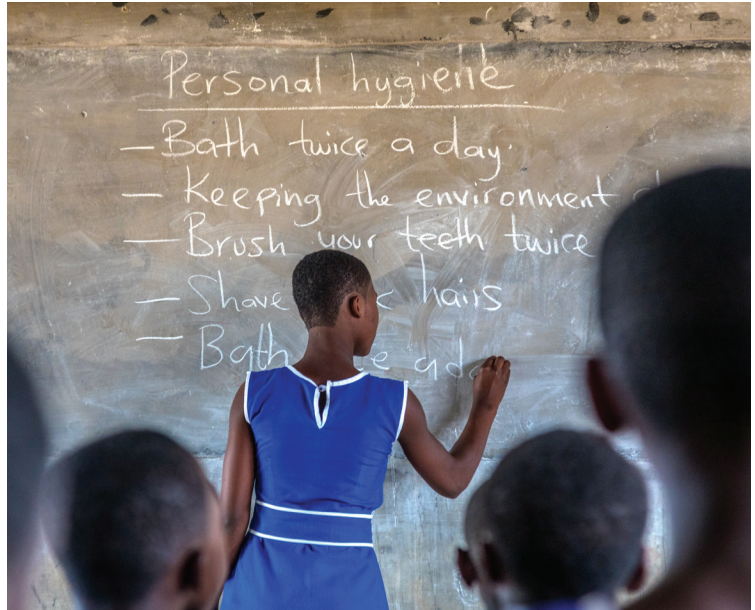 Personal hygiene
- Bath twice a day.
- Keeping the environment
- Brush your teeth twice
- Shave hairs
- Bath